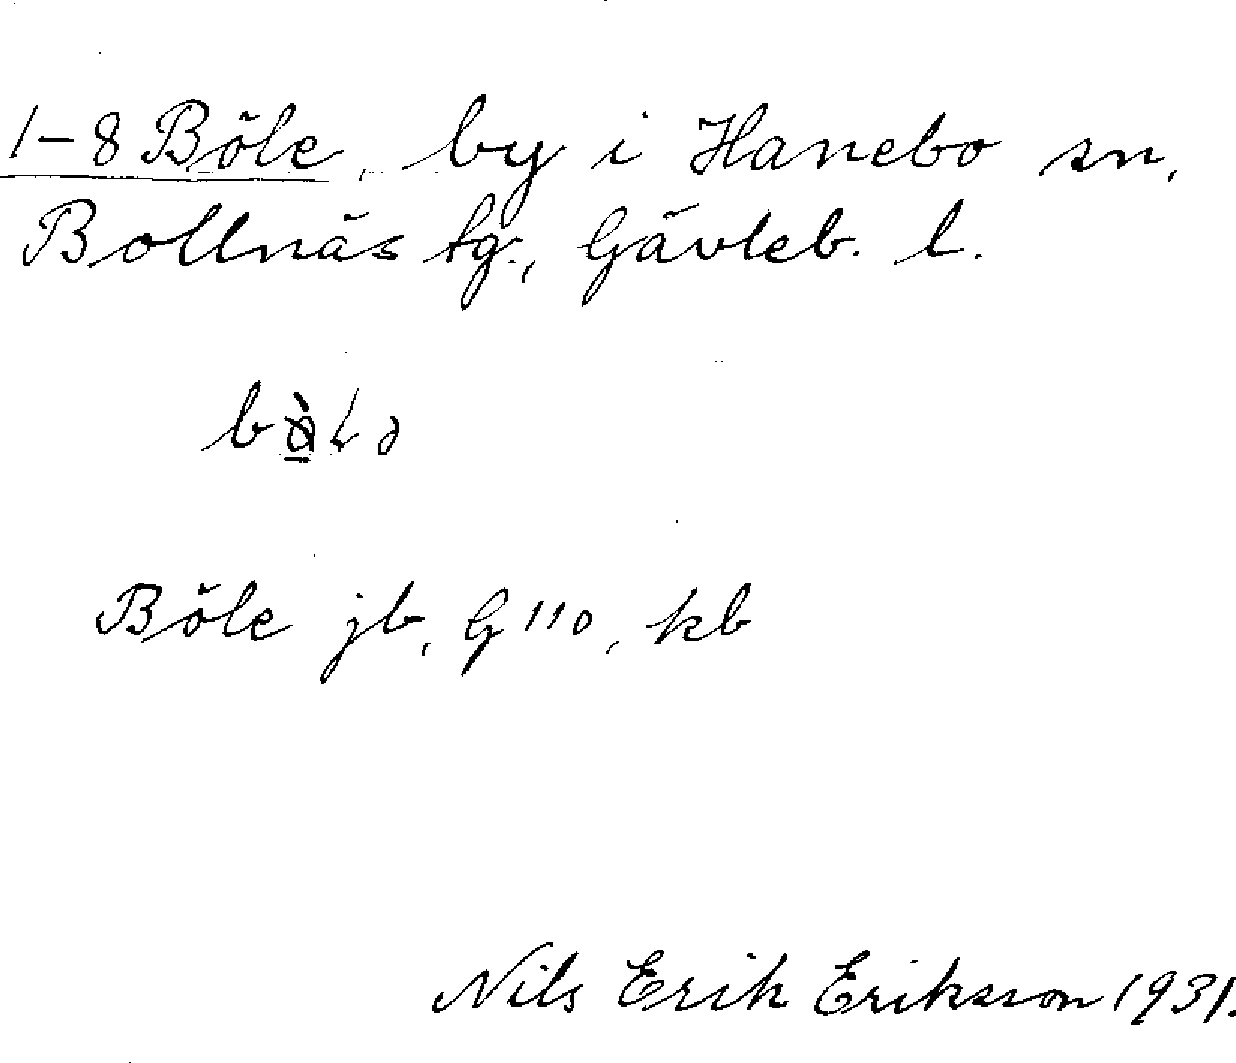 1-8 Böle, by i Hanebo sn,
Bollnäs tg., Gävleb. l.
Böle jb, G 110, kb
Nils Erik Eriksson 1931.